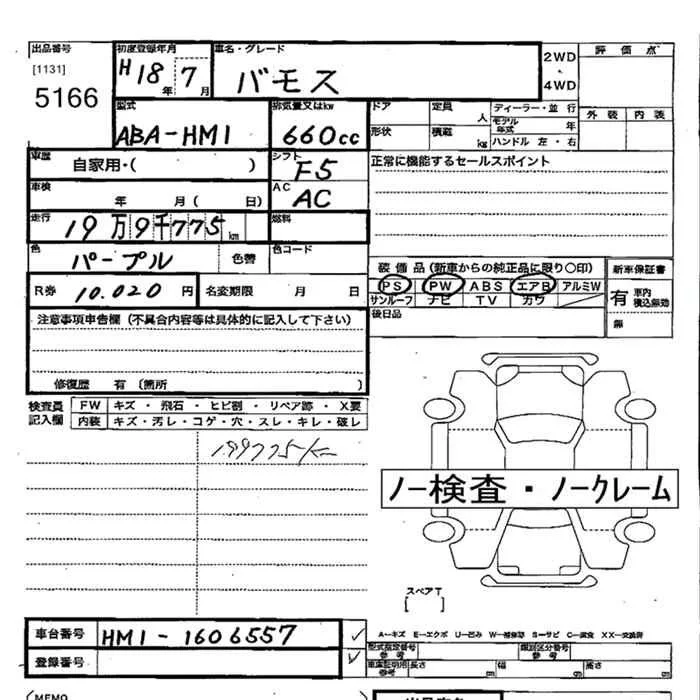 出品番号 初度登録年月 車名・グレード 2WD・4WD 評価点
[1131] 5166 H18年 7月 バモス
外装 内装
型式 排気量又はkw ドア 定員 人 ディーラー・並行
ABA-HM1 660cc 形状 積載 kg モデル年式 年
ハンドル 左・右
車歴 自家用・( ) シフト F5 正常に機能するセールスポイント
車検 年 月( 日) AC AC
走行 19万9千775km 燃料
色 パープル 色替 色コード
装備品(新車からの純正品に限り○印) 新車保証書
R券 10.020円 名変期限 月 日 PS PW ABS エアB アルミW 有 車内 積込無効
サンルーフ ナビ TV カワ
注意事項申告欄(不具合内容等は具体的に記入して下さい) 後日品 無
修復歴 有 〔箇所 〕
検査員記入欄 FW キズ・飛石・ヒビ割・リペア跡・X要
内装 キズ・汚レ・コゲ・穴・スレ・キレ・破レ
199775km
ノー検査・ノークレーム
スペアT
[ ]
車台番号 HM1-1606557 ✓ A-キズ E-エクボ U-凹み W-補修跡 S-サビ C-腐食 XX-交換済
登録番号 ✓ 型式指定番号 参考 類別区分番号 参考
車庫証明用 参考 長さ cm 幅 cm 高さ cm
MEMO 出品店名